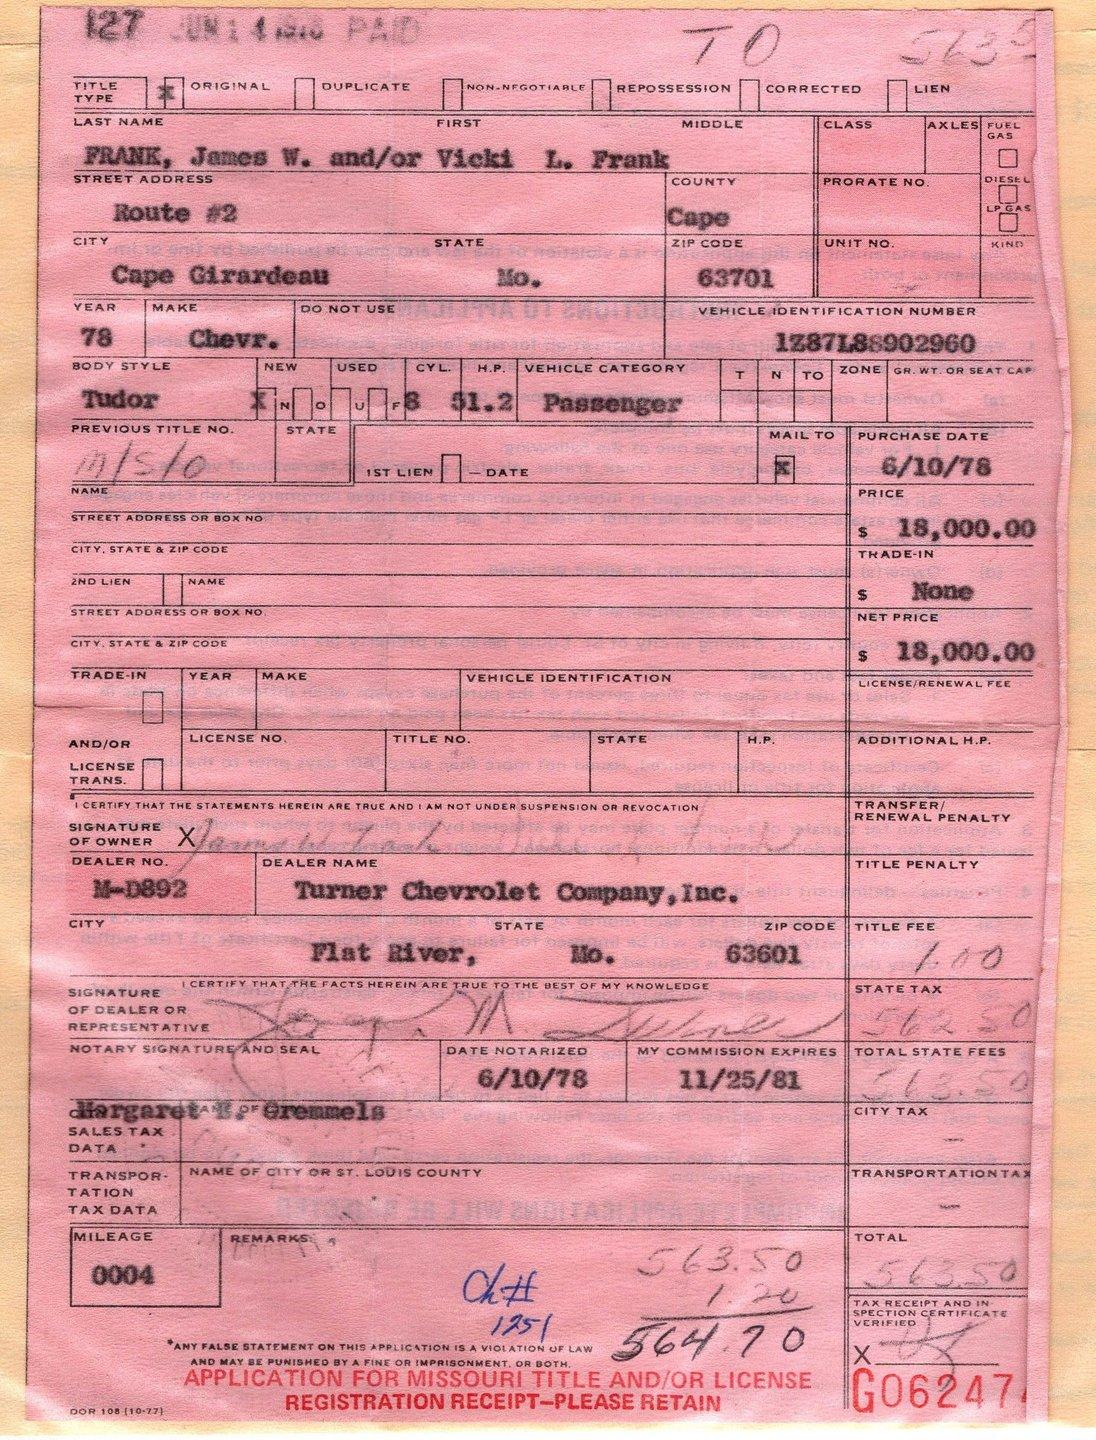 127 JUN 14 1978 PAID
TO 563 5
TITLE TYPE X ORIGINAL DUPLICATE NON-NEGOTIABLE REPOSSESSION CORRECTED LIEN
LAST NAME FIRST MIDDLE CLASS AXLES FUEL GAS
FRANK, James W. and/or Vicki L. Frank
STREET ADDRESS COUNTY PRORATE NO. DIESEL
Route #2 Cape LP GAS
CITY STATE ZIP CODE UNIT NO. KIND
Cape Girardeau Mo. 63701
YEAR MAKE DO NOT USE VEHICLE IDENTIFICATION NUMBER
78 Chevr. 1Z87L8S902960
BODY STYLE NEW USED CYL. H.P. VEHICLE CATEGORY T N TO ZONE GR. WT. OR SEAT CAP
Tudor X N O U F 8 51.2 Passenger
PREVIOUS TITLE NO. STATE MAIL TO PURCHASE DATE
M/S/O 1ST LIEN - DATE X 6/10/78
NAME PRICE
STREET ADDRESS OR BOX NO $ 18,000.00
CITY, STATE & ZIP CODE TRADE-IN
2ND LIEN NAME $ None
STREET ADDRESS OR BOX NO. NET PRICE
CITY, STATE & ZIP CODE $ 18,000.00
TRADE-IN YEAR MAKE VEHICLE IDENTIFICATION LICENSE/RENEWAL FEE
AND/OR LICENSE NO. TITLE NO. STATE H.P. ADDITIONAL H.P.
LICENSE TRANS.
*I CERTIFY THAT THE STATEMENTS HEREIN ARE TRUE AND I AM NOT UNDER SUSPENSION OR REVOCATION TRANSFER/ RENEWAL PENALTY
SIGNATURE OF OWNER X James W.
DEALER NO. DEALER NAME TITLE PENALTY
M-D892 Turner Chevrolet Company,Inc.
CITY STATE ZIP CODE TITLE FEE
Flat River, Mo. 63601 1.00
I CERTIFY THAT THE FACTS HEREIN ARE TRUE TO THE BEST OF MY KNOWLEDGE STATE TAX
SIGNATURE OF DEALER OR REPRESENTATIVE 562.50
NOTARY SIGNATURE AND SEAL DATE NOTARIZED MY COMMISSION EXPIRES TOTAL STATE FEES
6/10/78 11/25/81 563.50
Margaret E. Gremmels CITY TAX
SALES TAX DATA -
TRANSPORTATION TAX DATA NAME OF CITY OR ST. LOUIS COUNTY TRANSPORTATION TAX
-
MILEAGE REMARKS: TOTAL
0004 563.50 563.50
1.20
Ch# 1251 564.70
TAX RECEIPT AND INSPECTION CERTIFICATE VERIFIED
X
*ANY FALSE STATEMENT ON THIS APPLICATION IS A VIOLATION OF LAW
AND MAY BE PUNISHED BY A FINE OR IMPRISONMENT, OR BOTH.
APPLICATION FOR MISSOURI TITLE AND/OR LICENSE
REGISTRATION RECEIPT-PLEASE RETAIN G062474
DOR 108 (10-77)